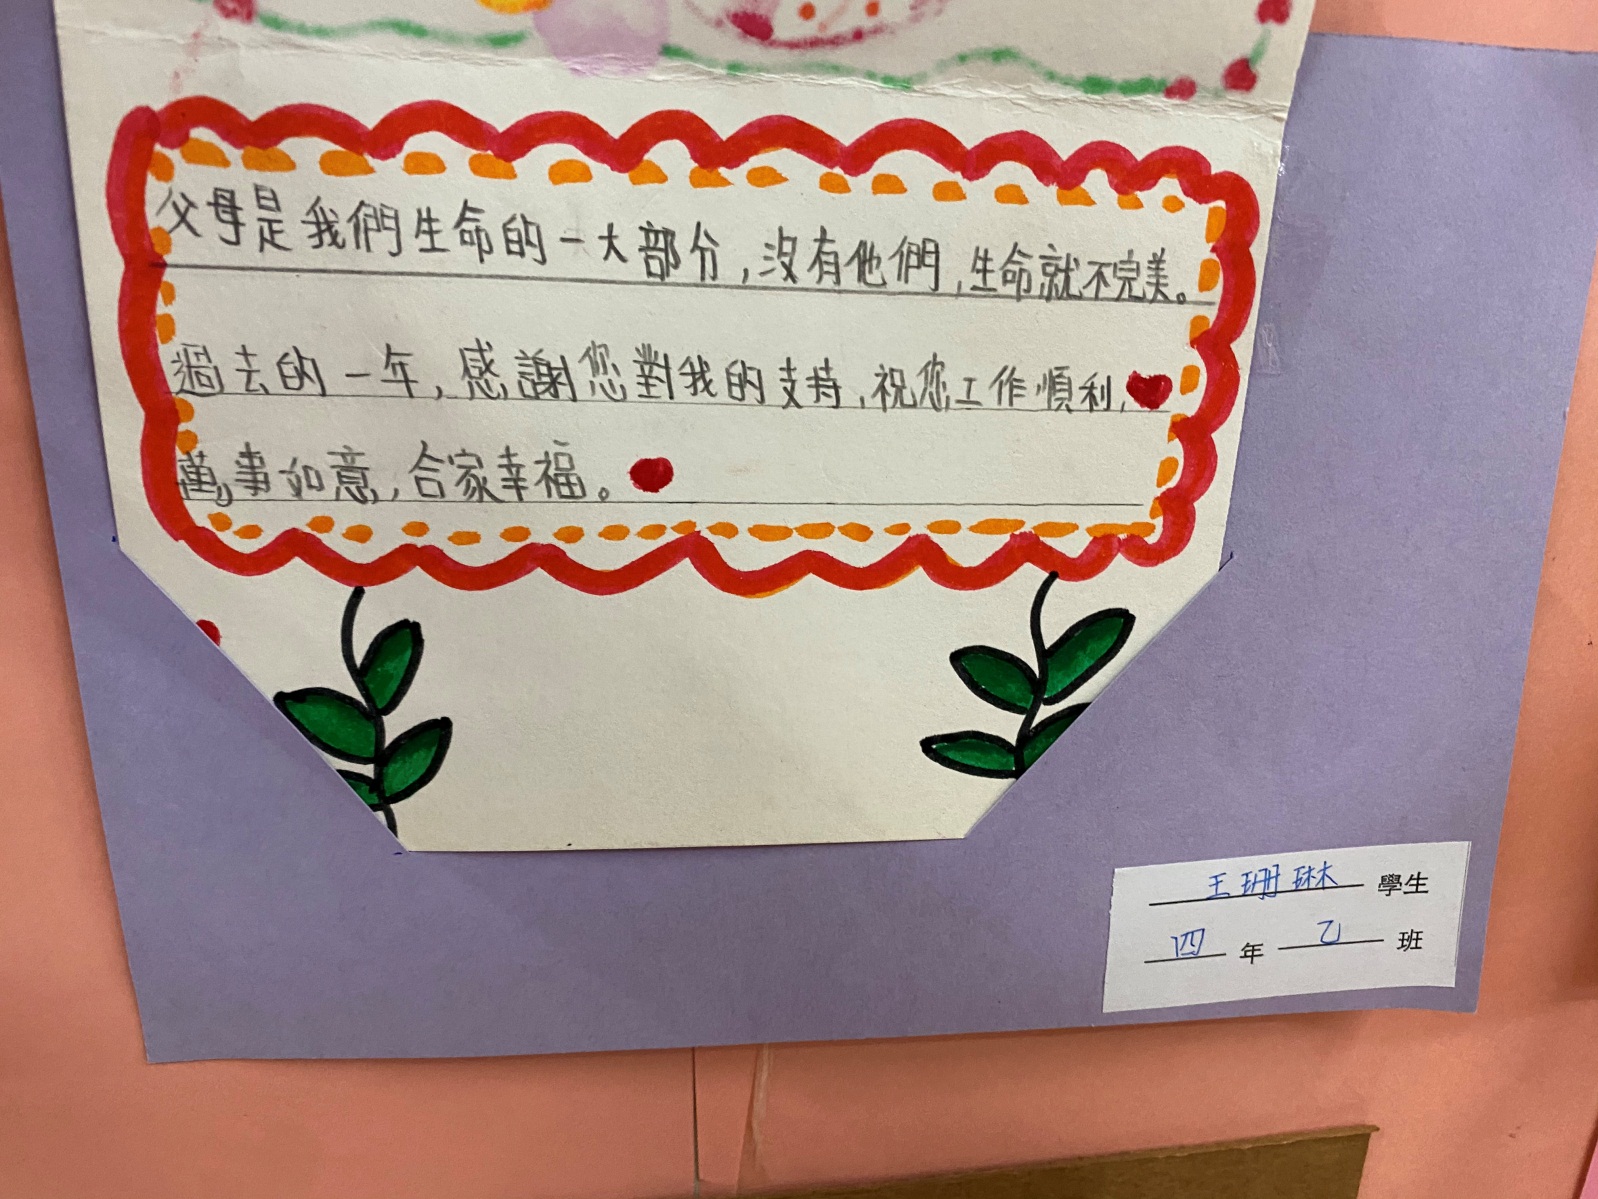 父母是我們生命的一大部分,沒有他們,生命就不完美。
過去的一年,感謝您對我的支持,祝您工作順利,
萬事如意,合家幸福。
王珊琳 學生
四 年 乙 班